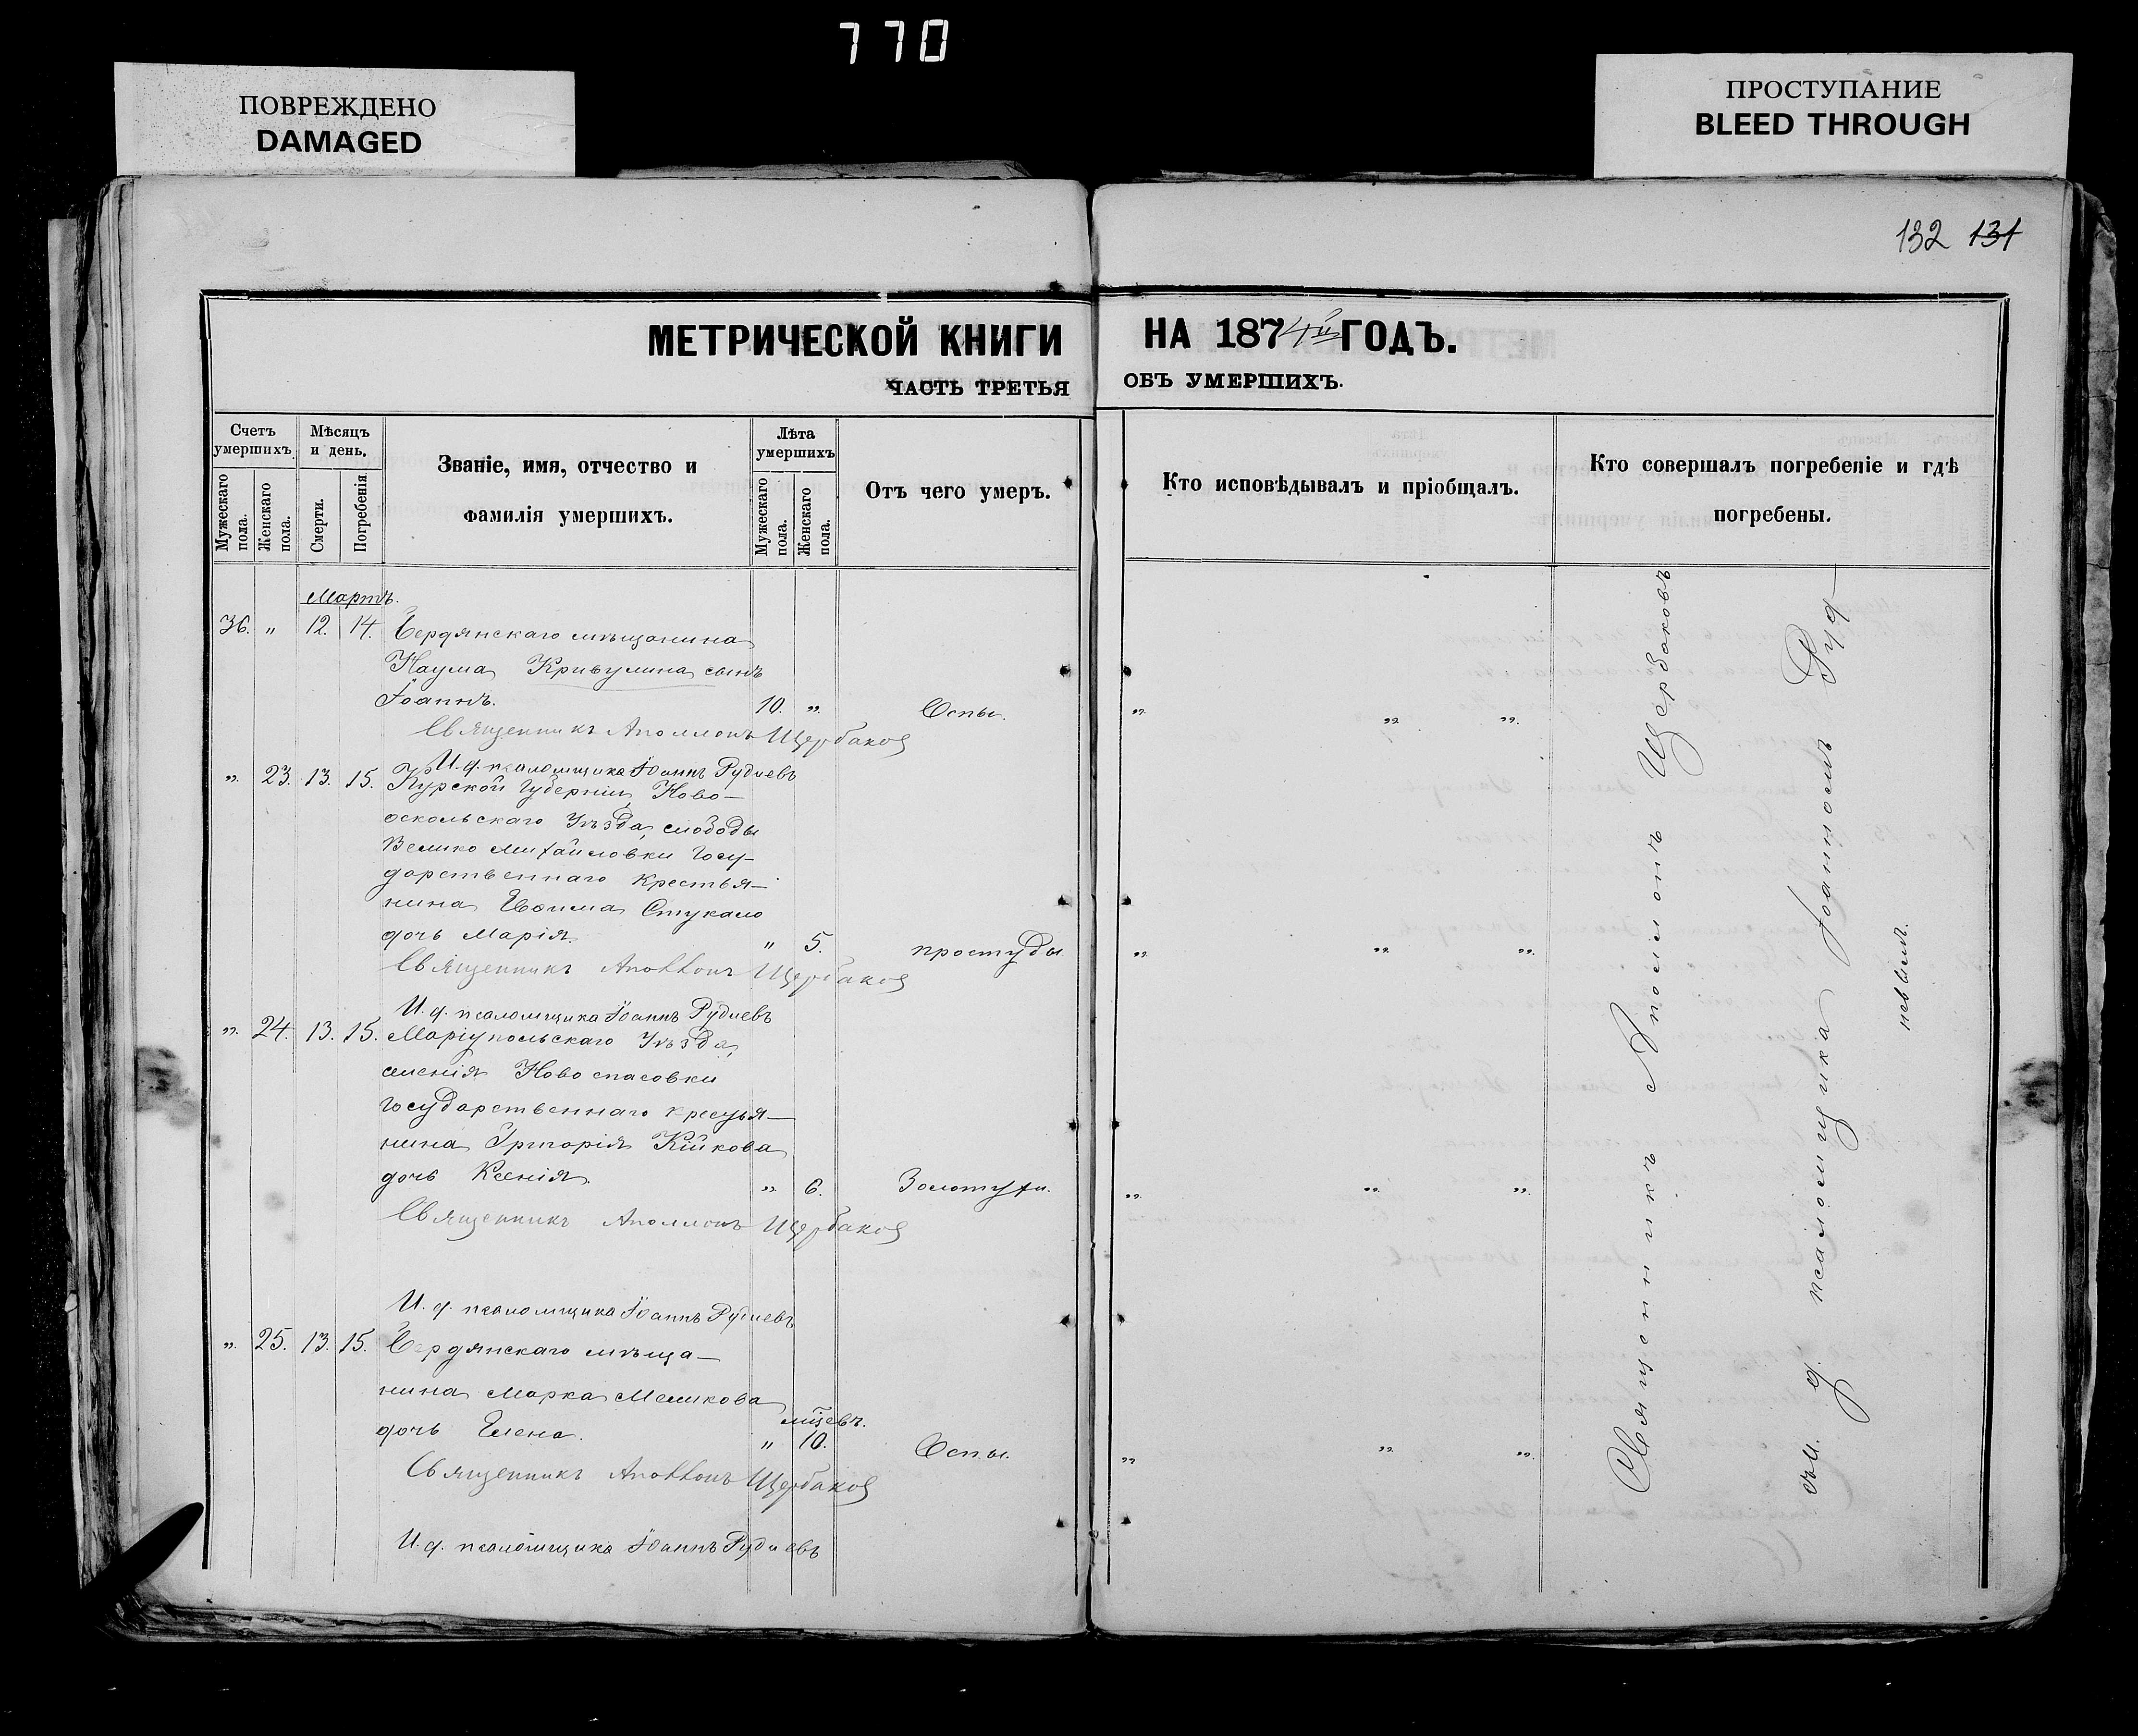 770
ПОВРЕЖДЕНО
DAMAGED
ПРОСТУПАНИЕ
BLEED THROUGH
132 131
МЕТРИЧЕСКОЙ КНИГИ НА 1874й ГОДЪ.
ЧАСТЬ ТРЕТЬЯ ОБЪ УМЕРШИХЪ.
Счетъ умершихъ.
Мужескаго пола.
Женскаго пола.
Мѣсяцъ и день.
Смерти.
Погребенія.
Званіе, имя, отчество и
фамилія умершихъ.
Лѣта умершихъ
Мужескаго пола.
Женскаго пола.
Отъ чего умеръ.
Кто исповѣдывалъ и пріобщалъ.
Кто совершалъ погребеніе и гдѣ
погребены.
Мартъ.
36. „ 12. 14. Бердянскаго мѣщанина
Наума Кривулина сынъ
Іоаннъ. 10. „ Оспы. „ „ „
Священникъ Аполлонъ Щербаков
И. д. псаломщика Іоаннъ Рудневъ
„ 23. 13. 15. Курской Губерніи, Ново-
оскольскаго Уѣзда, слободы
Велико Михайловки Госу-
дарственнаго крестья-
нина Ефима Стукало
дочь Марія. „ 5. простуды „ „ „
Священникъ Аполлонъ Щербаков
И. д. псаломщика Іоаннъ Рудневъ
„ 24. 13. 15. Маріупольскаго Уѣзда,
селенія Ново спасовки
Государственнаго кресья-
нина Григорія Кійкова
дочь Ксенія. „ 6. Золотухи. „ „ „
Священникъ Аполлонъ Щербаков
И. д. псаломщика Іоаннъ Рудневъ
„ 25. 13. 15. Бердянскаго мѣща-
нина Марка Меликова
дочь Елена. „ 10. Оспы. „ „ „
Священникъ Аполлонъ Щербаков
И. д. псаломщика Іоаннъ Рудневъ
Священникъ Аполлонъ Щербаковъ
съ И. д. псаломщика Іоанномъ Руд-
невымъ.